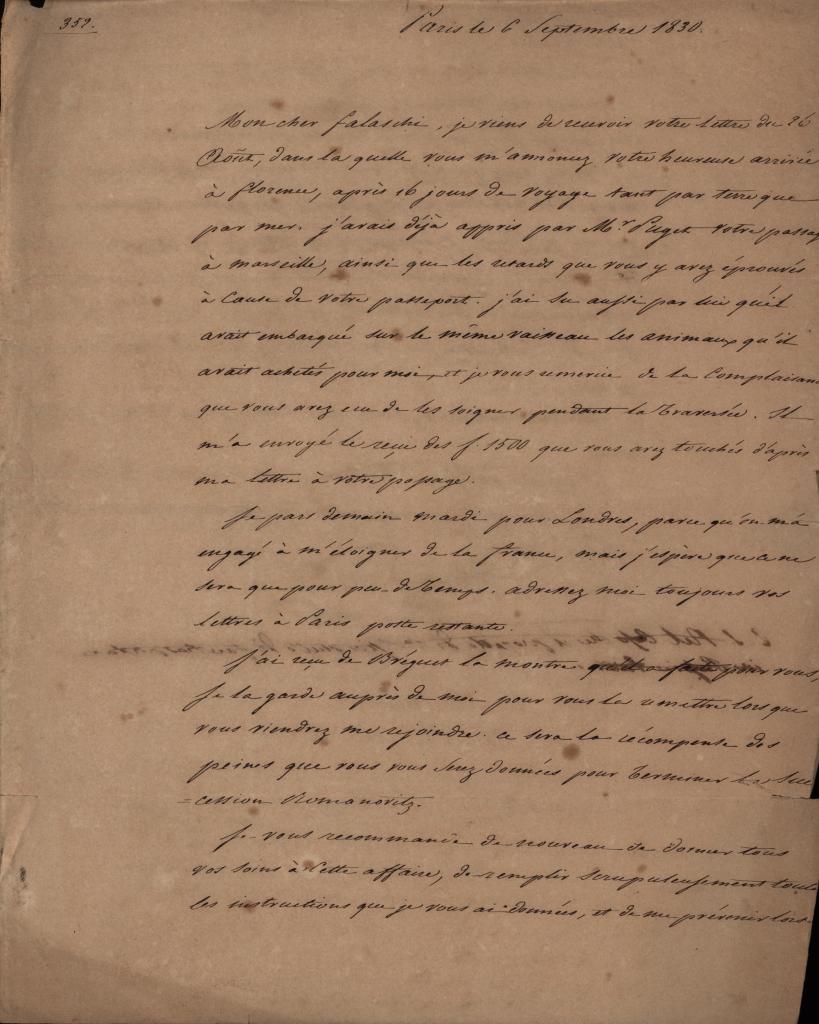 352.
Paris le 6 Septembre 1830.
Mon cher falaschi, je viens de recevoir votre lettre du 26
Août, dans la quelle vous m'annoncez votre heureuse arrivée
à florence, après 16 jours de voyage tant par terre que
par mer. j'avais déjà appris par Mr. Puget votre passag
à marseille, ainsi que les retards que vous y avez éprouvés
à Cause de votre passeport. j'ai su aussi par lui qu'il
avait embarqué sur le même vaisseau les animaux qu'il
avait achetés pour moi, et je vous remercie de la Complaisan
que vous avez eue de les soigner pendant la traversée. Il
m'a envoyé le reçu des f. 1500 que vous avez touchés d'après
ma lettre à votre passage.
Je pars demain mardi pour Londres, parce qu'on m'a
engagé à m'éloigner de la france, mais j'espère que ce ne
sera que pour peu de temps. adressez moi toujours vos
lettres à Paris poste restante.
J'ai reçu de Bréguet la montre qu'il a faite pour vous,
Je la garde auprès de moi pour vous la remettre lorsque
vous viendrez me rejoindre. ce sera la récompense des
peines que vous vous serez données pour terminer la Suc
=cession Romanovitz.
Je vous recommande de nouveau de donner tous
vos soins à Cette affaire, de remplir scrupuleusement toute
les instructions que je vous ai données, et de me prévenir lors